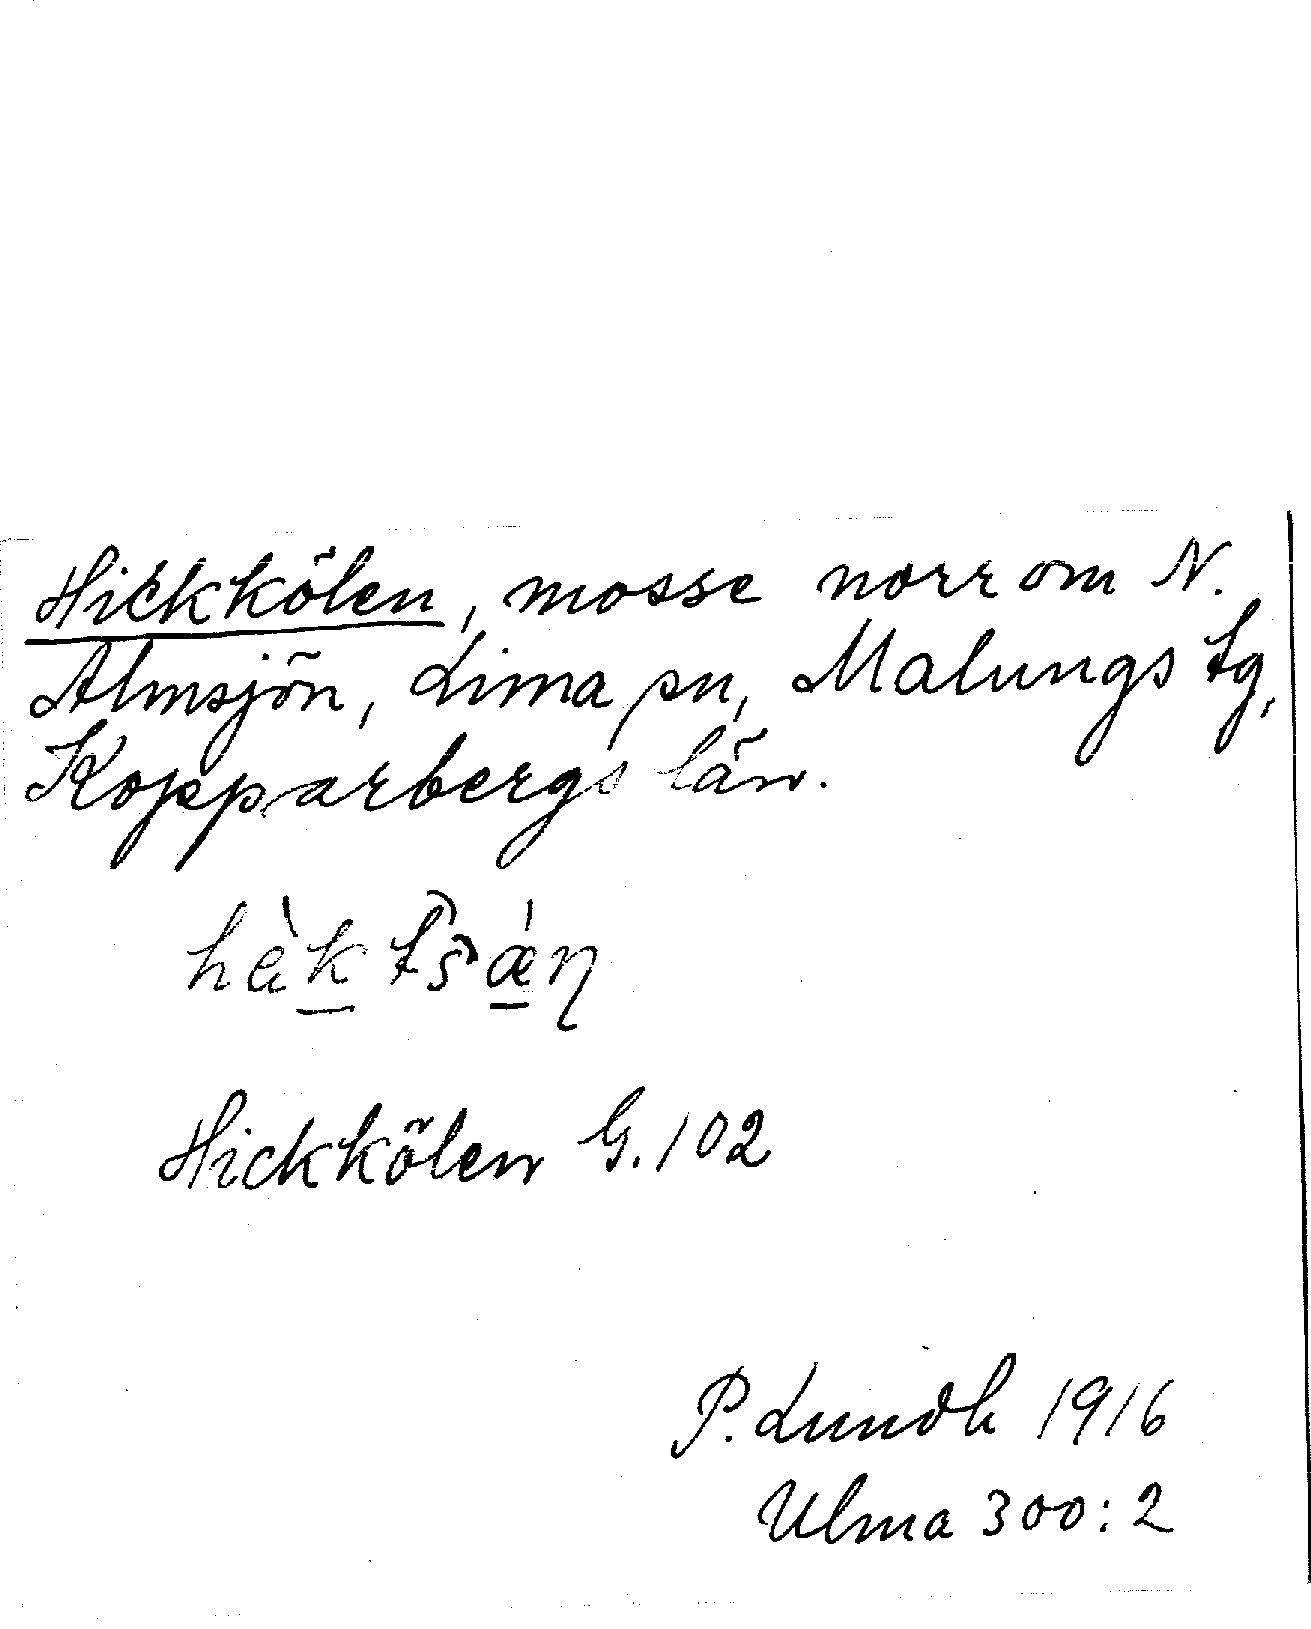 Hickkölen, mosse norr om N.
Almsjön, Lima sn, Malungs tg,
Kopparbergs län.
Hickkölen G. 102
P. Lundh 1916
Ulma 300:2